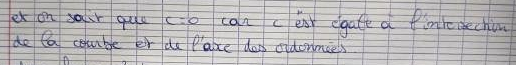 et on sait que c=0 car c est égale à l'intersection
de la courbe et de l'axe des ordonnées.